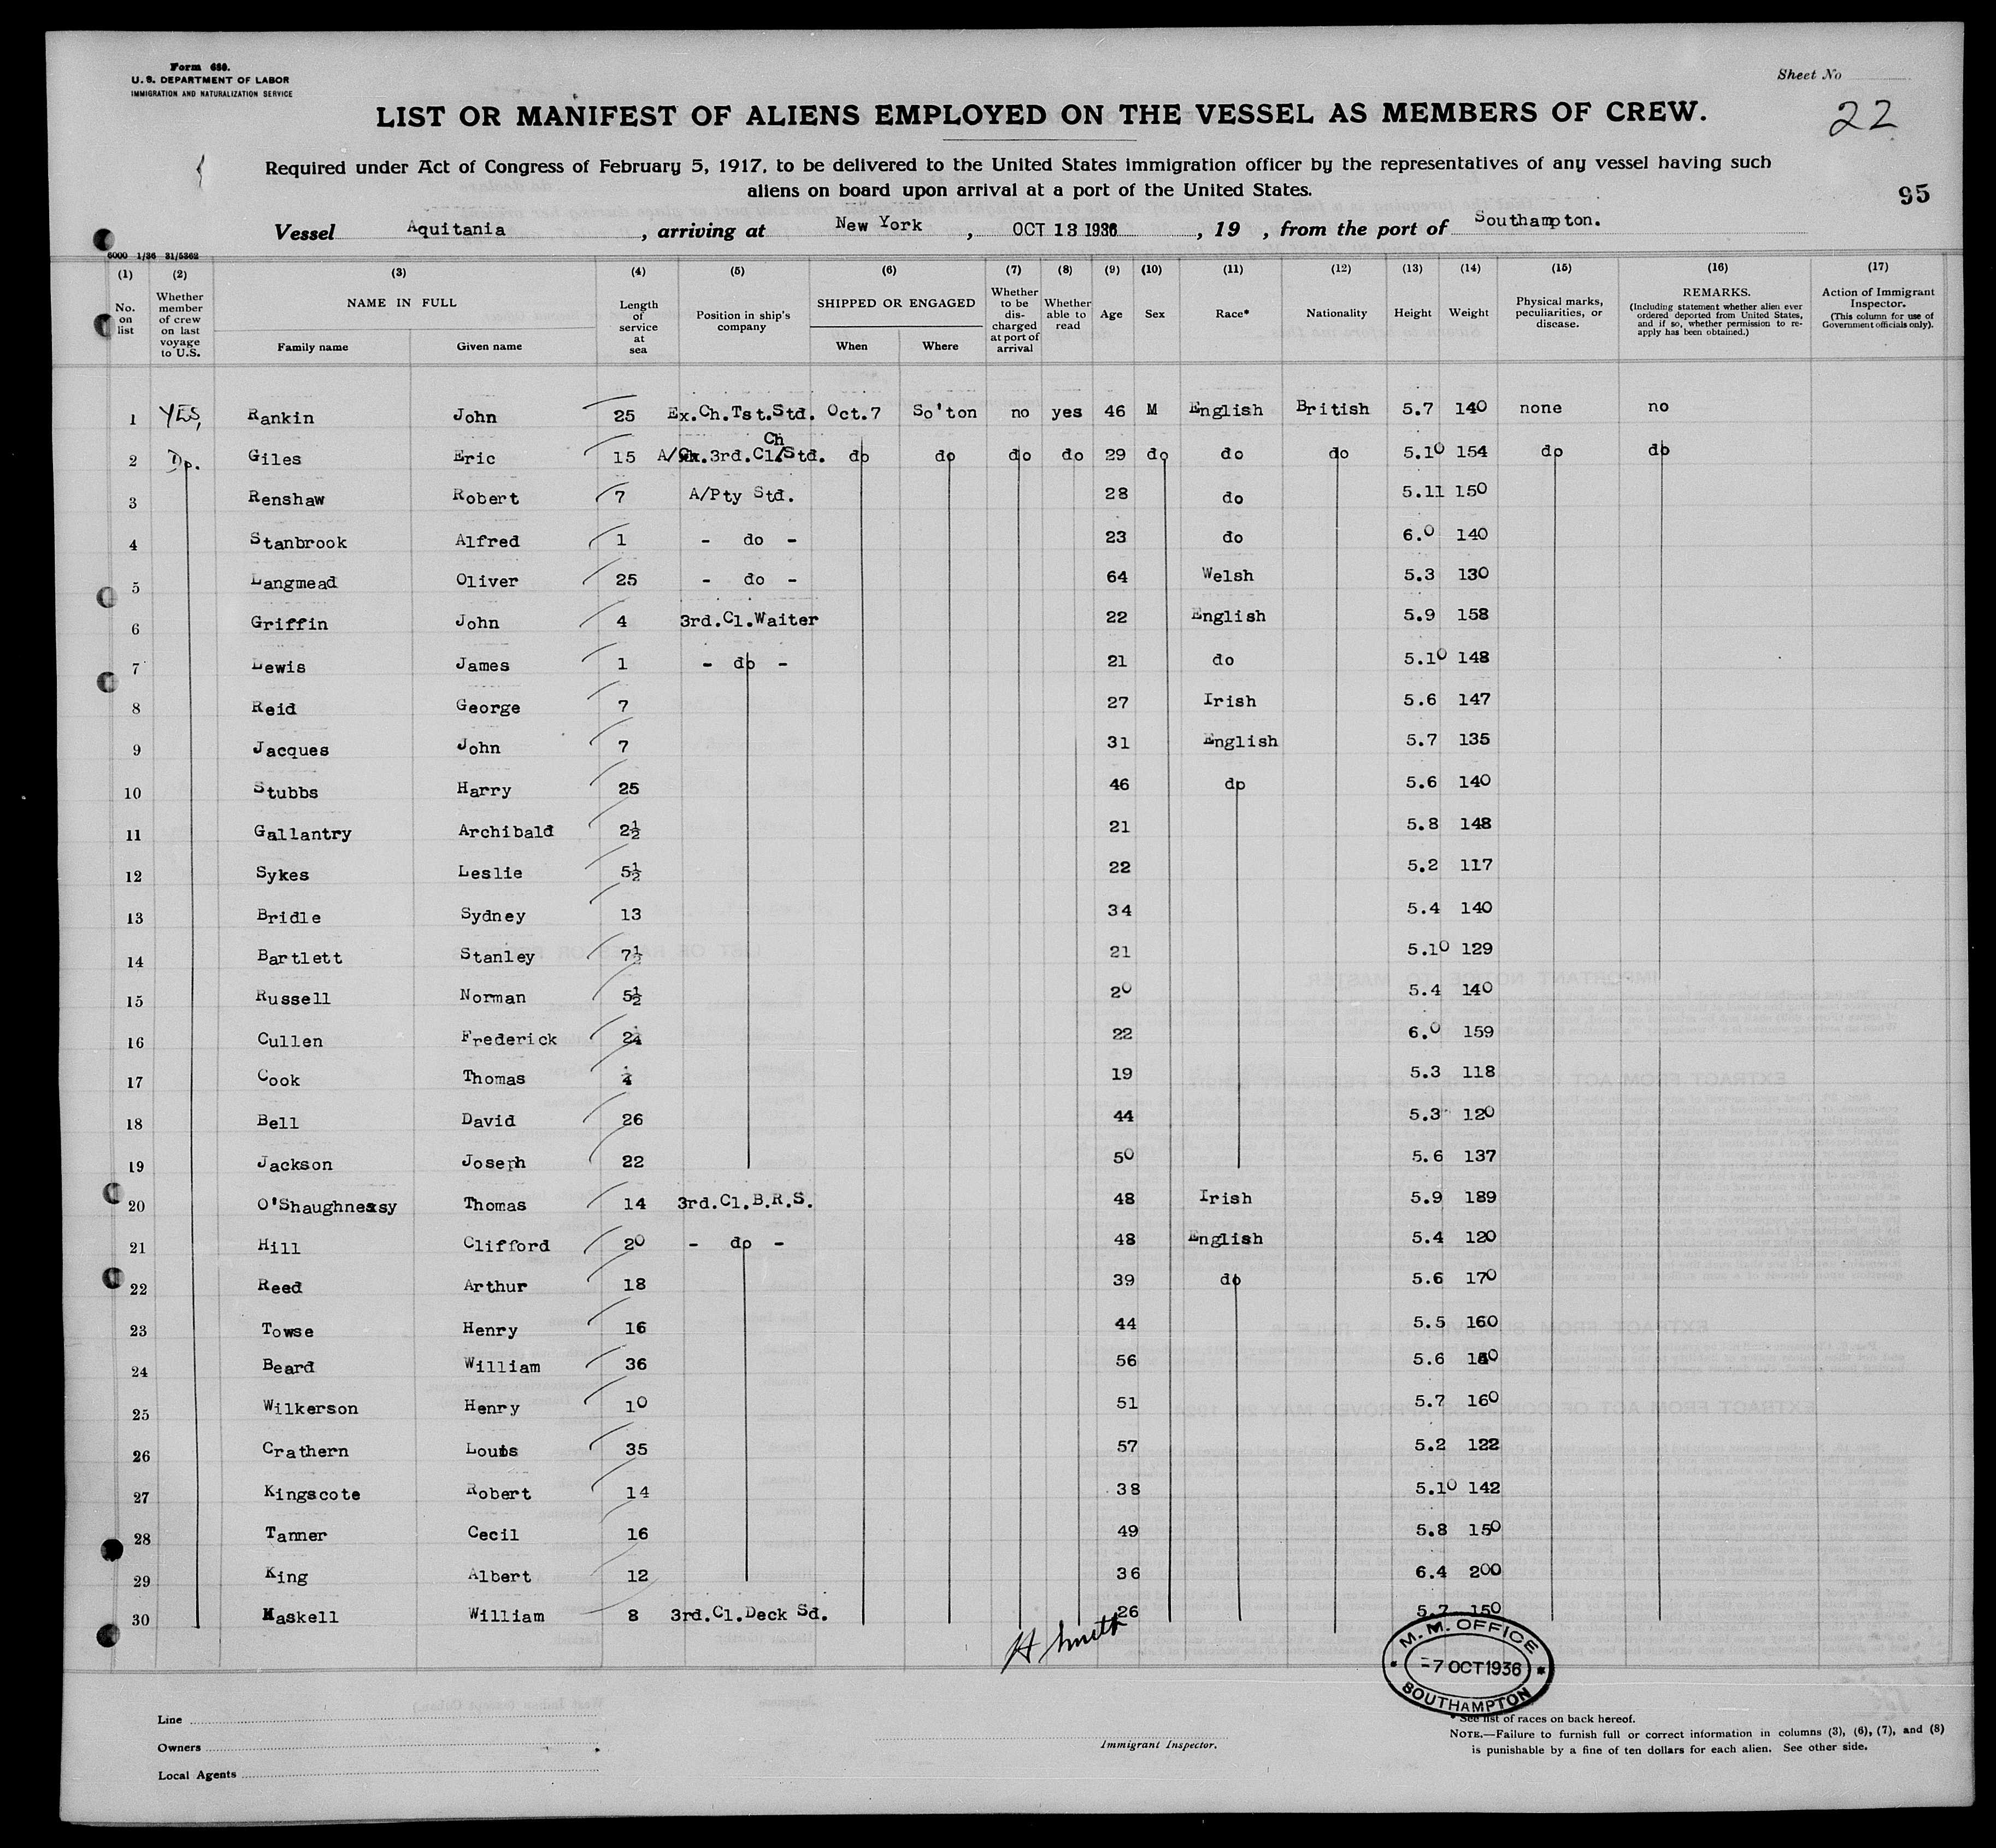 Form 680.
U. S. DEPARTMENT OF LABOR
IMMIGRATION AND NATURALIZATION SERVICE
Sheet No
LIST OR MANIFEST OF ALIENS EMPLOYED ON THE VESSEL AS MEMBERS OF CREW.
22
Required under Act of Congress of February 5, 1917, to be delivered to the United States immigration officer by the representatives of any vessel having such
aliens on board upon arrival at a port of the United States.
95
Vessel Aquitania, arriving at New York, OCT 13 1936, 19 , from the port of Southampton.
6000 1/36 31/5362
(1) (2) (3) (4) (5) (6) (7) (8) (9) (10) (11) (12) (13) (14) (15) (16) (17)
No. on list
Whether member of crew on last voyage to U.S.
NAME IN FULL
Family name Given name
Length of service at sea
Position in ship's company
SHIPPED OR ENGAGED
When Where
Whether to be discharged at port of arrival
Whether able to read
Age
Sex
Race*
Nationality
Height
Weight
Physical marks, peculiarities, or disease.
REMARKS.
(Including statement whether alien ever ordered deported from United States, and if so, whether permission to reapply has been obtained.)
Action of Immigrant Inspector.
(This column for use of Government officials only).
1 YES, Rankin John 25 Ex.Ch.Tst.Std. Oct.7 So'ton no yes 46 M English British 5.7 140 none no
2 Do. Giles Eric 15 A/Ch.3rd.Cl/Std. do do do do 29 do do do 5.10 154 do do
3 Renshaw Robert 7 A/Pty Std. 28 do 5.11 150
4 Stanbrook Alfred 1 - do - 23 do 6.0 140
5 Langmead Oliver 25 - do - 64 Welsh 5.3 130
6 Griffin John 4 3rd.Cl.Waiter 22 English 5.9 158
7 Lewis James 1 - do - 21 do 5.10 148
8 Reid George 7 27 Irish 5.6 147
9 Jacques John 7 31 English 5.7 135
10 Stubbs Harry 25 46 do 5.6 140
11 Gallantry Archibald 2½ 21 5.8 148
12 Sykes Leslie 5½ 22 5.2 117
13 Bridle Sydney 13 34 5.4 140
14 Bartlett Stanley 7½ 21 5.10 129
15 Russell Norman 5½ 20 5.4 140
16 Cullen Frederick 2¼ 22 6.0 159
17 Cook Thomas ¼ 19 5.3 118
18 Bell David 26 44 5.3 120
19 Jackson Joseph 22 50 5.6 137
20 O'Shaughnessy Thomas 14 3rd.Cl.B.R.S. 48 Irish 5.9 189
21 Hill Clifford 20 - do - 48 English 5.4 120
22 Reed Arthur 18 39 do 5.6 170
23 Towse Henry 16 44 5.5 160
24 Beard William 36 56 5.6
25 Wilkerson Henry 10 51 5.7 160
26 Crathern Louis 35 57 5.2 122
27 Kingscote Robert 14 38 5.10 142
28 Tanner Cecil 16 49 5.8 150
29 King Albert 12 36 6.4 200
30 Maskell William 8 3rd.Cl.Deck Sd. 26 5.7 150
H Smith
M. M. OFFICE
-7 OCT 1936
SOUTHAMPTON
Line
Owners
Local Agents
Immigrant Inspector.
* See list of races on back hereof.
NOTE.—Failure to furnish full or correct information in columns (3), (6), (7), and (8)
is punishable by a fine of ten dollars for each alien. See other side.